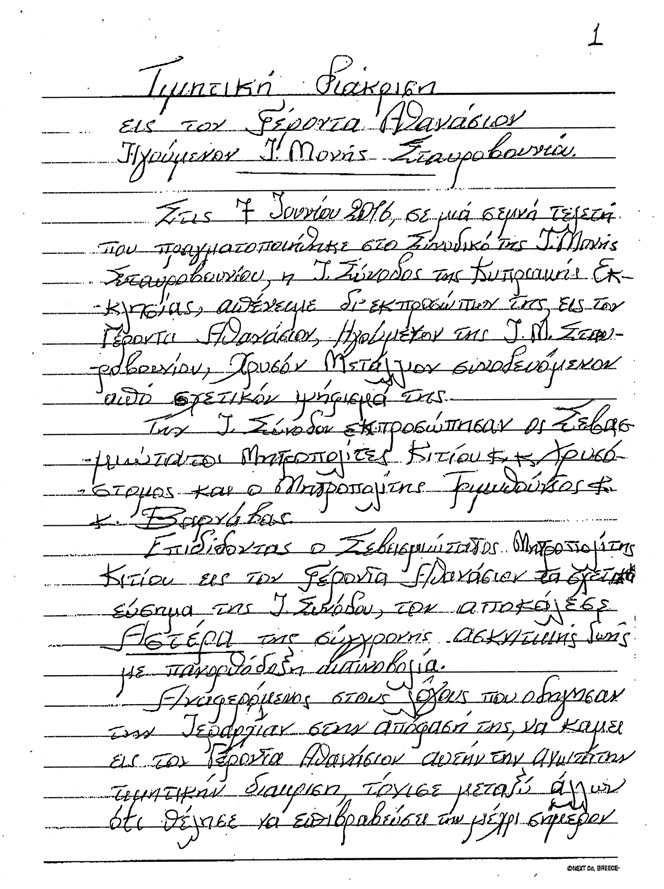 1
Τιμητική διάκριση
εις τον Γέροντα Αθανάσιον
Ηγούμενον Ι. Μονής Σταυροβουνίου.
Στις 7 Ιουνίου 2016, σε μιά σεμνή τελετή
που πραγματοποιήθηκε στο Συνοδικό της Ι. Μονής
Σταυροβουνίου, η Ι. Σύνοδος της Κυπριακής Εκ-
-κλησίας, απένειμε δι' εκπροσώπων της, εις τον
Γέροντα Αθανάσιον, Ηγούμενον της Ι. Μ. Σταυ-
ροβουνίου, Χρυσόν Μετάλλιον συνοδευόμενον
από σχετικόν ψήφισμά της.
Την Ι. Σύνοδον εκπροσώπησαν οι Σεβασ-
-μιώτατοι Μητροπολίτες Κιτίου κ. κ. Χρυσό-
-στομος και ο Μητροπολίτης Τριμυθούντος κ.
κ. Βαρνάβας.
Επιδίδοντας ο Σεβασμιώτατος Μητροπολίτης
Κιτίου εις τον Γέροντα Αθανάσιον τα σχετικά
εύσημα της Ι. Συνόδου, τον αποκάλεσε
Αστέρα της σύγχρονης ασκητικής ζωής
με πανορθόδοξη ακτινοβολία.
Αναφερόμενος στους λόγους που οδήγησαν
την Ιεραρχίαν στην απόφασή της, να κάμει
εις τον Γέροντα Αθανάσιον αυτήν την ανωτάτην
τιμητικήν διάκριση, τόνισε μεταξύ άλλων
ότι θέλησε να επιβραβεύσει την μέχρι σήμερον
©NEXT Co, GREECE-